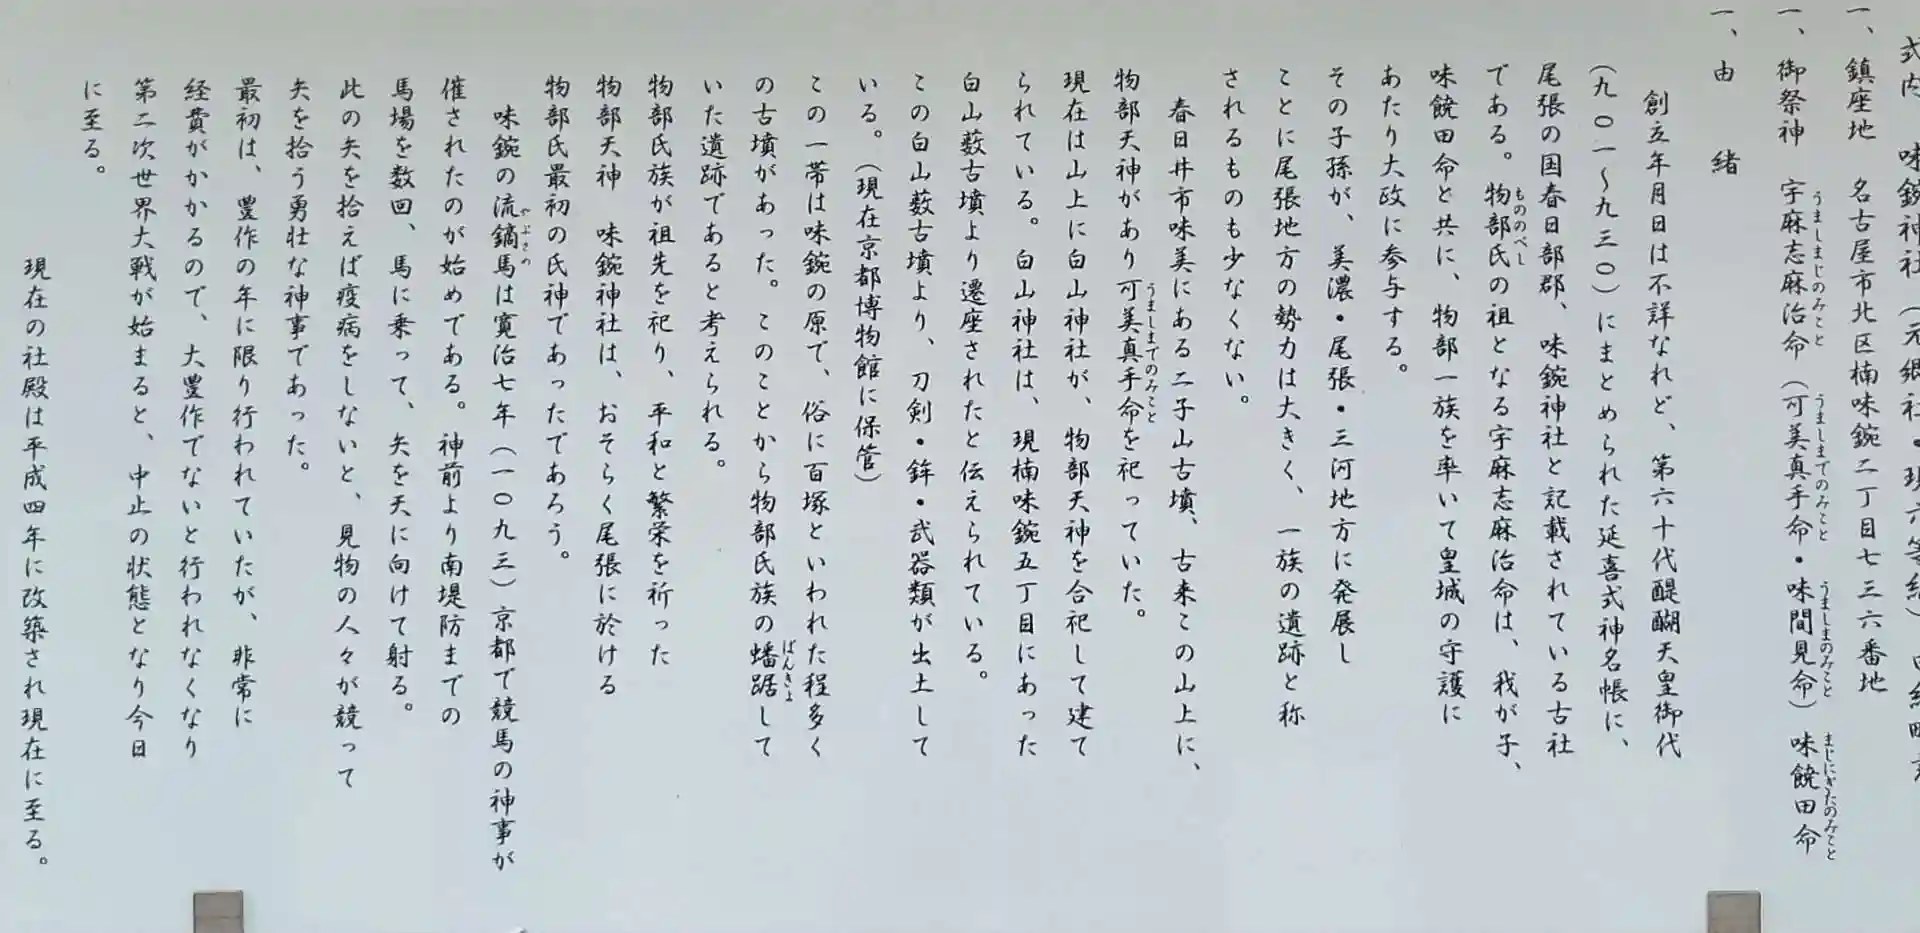 式内 味鋺神社(元郷社・現六等級)
一、鎮座地 名古屋市北区楠味鋺二丁目七三六番地
一、御祭神 宇麻志麻治命(可美真手命・味間見命)味饒田命
うましまじのみこと うましまでのみこと うましまのみこと まじにぎたのみこと
一、由 緒
創立年月日は不詳なれど、第六十代醍醐天皇御代
(九〇一〜九三〇)にまとめられた延喜式神名帳に、
尾張の国春日部郡、味鋺神社と記載されている古社
である。物部氏の祖となる宇麻志麻治命は、我が子、
もののべし
味饒田命と共に、物部一族を率いて皇城の守護に
あたり大政に参与する。
その子孫が、美濃・尾張・三河地方に発展し
ことに尾張地方の勢力は大きく、一族の遺跡と称
されるものも少なくない。
春日井市味美にある二子山古墳、古来この山上に、
物部天神があり可美真手命を祀っていた。
うましまでのみこと
現在は山上に白山神社が、物部天神を合祀して建て
られている。白山神社は、現楠味鋺五丁目にあった
白山薮古墳より遷座されたと伝えられている。
この白山薮古墳より、刀剣・鉾・武器類が出土して
いる。(現在京都博物館に保管)
この一帯は味鋺の原で、俗に百塚といわれた程多く
の古墳があった。このことから物部氏族の蟠踞して
ばんきょ
いた遺跡であると考えられる。
物部氏族が祖先を祀り、平和と繁栄を祈った
物部天神 味鋺神社は、おそらく尾張に於ける
物部氏最初の氏神であったであろう。
味鋺の流鏑馬は寛治七年(一〇九三)京都で競馬の神事が
やぶさめ
催されたのが始めである。神前より南堤防までの
馬場を数回、馬に乗って、矢を天に向けて射る。
此の矢を拾えば疫病をしないと、見物の人々が競って
矢を拾う勇壮な神事であった。
最初は、豊作の年に限り行われていたが、非常に
経費がかかるので、大豊作でないと行われなくなり
第二次世界大戦が始まると、中止の状態となり今日
に至る。
現在の社殿は平成四年に改築され現在に至る。